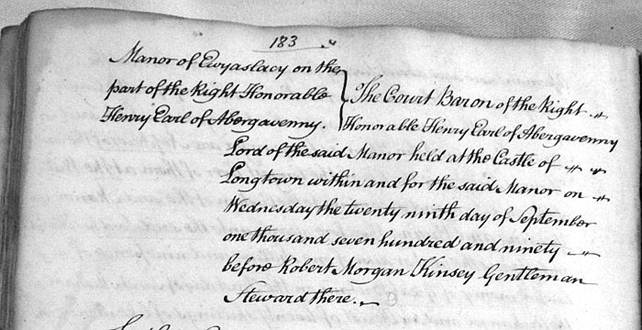 183
Manor of Ewyaslacy on the
part of the Right Honorable
Henry Earl of Abergavenny.
The Court Baron of the Right
Honorable Henry Earl of Abergavenny
Lord of the said Manor held at the Castle of
Longtown within and for the said Manor on
Wednesday the twenty ninth day of September
one thousand seven hundred and ninety
before Robert Morgan Kinsey Gentleman
Steward there.